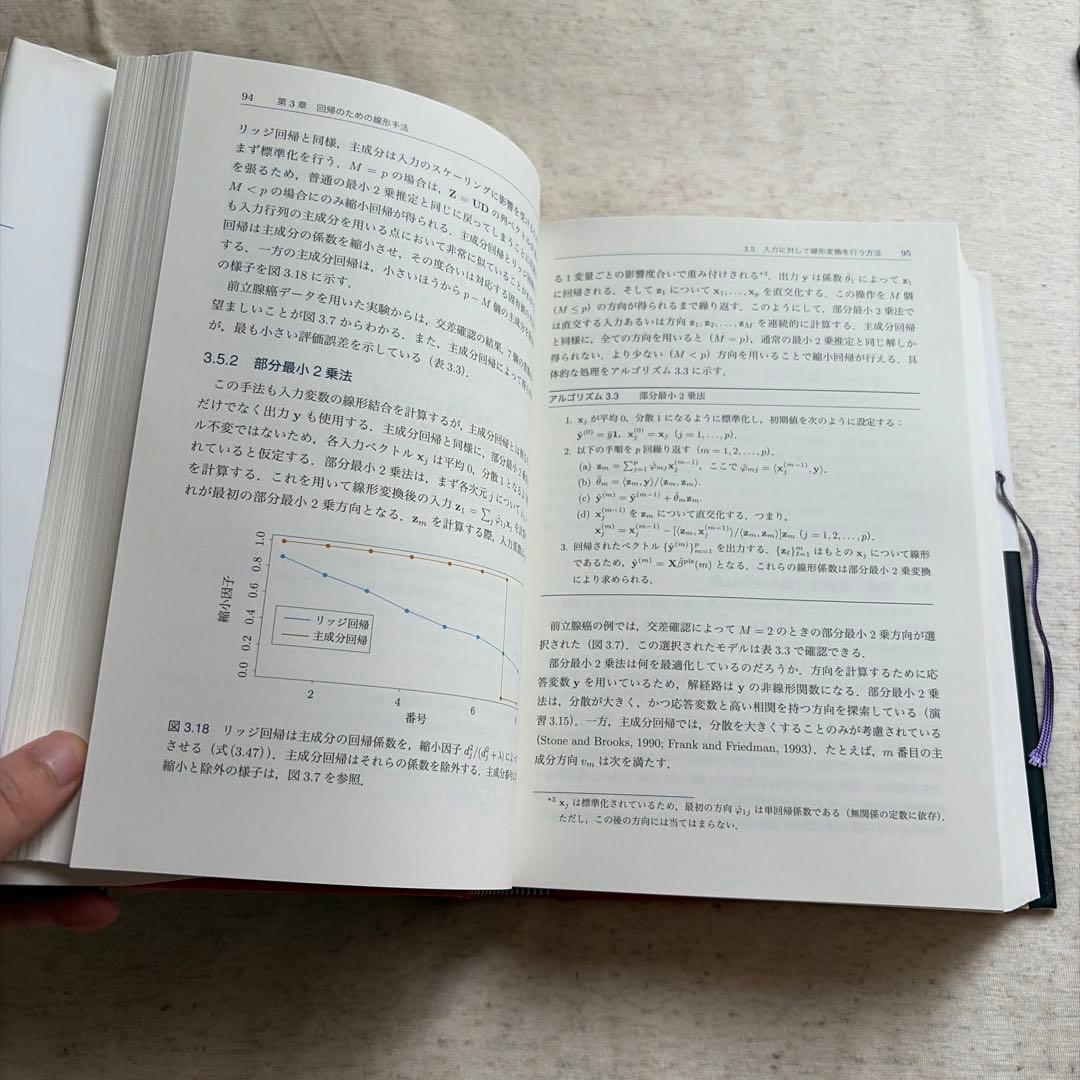 94 第3章 回帰のための線形手法
リッジ回帰と同様，主成分は入力のスケーリングに影響を受ける
まず標準化を行う．M = p の場合は，Z = UD の列ベクトルが
を張るため，普通の最小2乗推定と同じに戻ってしまうことに
M < p の場合にのみ縮小回帰が得られる．主成分回帰とリッジ
も入力行列の主成分を用いる点において非常に似ていることが
回帰は主成分の係数を縮小させ，その度合いは対応する固有値
する．一方の主成分回帰は，小さいほうから p − M 個の主成分を
の様子を図3.18に示す．
前立腺癌データを用いた実験からは，交差確認の結果，7個の
望ましいことが図3.7からわかる．また，主成分回帰によって得
が，最も小さい評価誤差を示している（表3.3）．
3.5.2 部分最小2乗法
この手法も入力変数の線形結合を計算するが，主成分回帰とは
だけでなく出力 y も使用する．主成分回帰と同様に，部分最小2乗
ル不変ではないため，各入力ベクトル xj は平均0，分散1となる
れていると仮定する．部分最小2乗法は，まず各次元 j について
を計算する．これを用いて線形変換後の入力 z1 = Σj φ̂1j xj を
れが最初の部分最小2乗方向となる．zm を計算する際，入力変数
縮小因子
0.0 0.2 0.4 0.6 0.8 1.0
リッジ回帰
主成分回帰
2 4 6
番号
図3.18 リッジ回帰は主成分の回帰係数を，縮小因子 dj²/(dj² + λ) によって
させる（式(3.47)）．主成分回帰はそれらの係数を除外する．主成分番号
縮小と除外の様子は，図3.7を参照．
3.5 入力に対して線形変換を行う方法 95
る1変量ごとの影響度合いで重み付けされる*3．出力 y は係数 θ̂1 によって z1
に回帰される．そして z1 について x1, . . . , xp を直交化する．この操作を M 個
（M ≤ p）の方向が得られるまで繰り返す．このようにして，部分最小2乗法で
は直交する入力あるいは方向 z1, z2, . . . , zM を連続的に計算する．主成分回帰
と同様に，全ての方向を用いると（M = p），通常の最小2乗推定と同じ解しか
得られない．より少ない（M < p）方向を用いることで縮小回帰が行える．具
体的な処理をアルゴリズム3.3に示す．
アルゴリズム3.3 部分最小2乗法
1. xj が平均0，分散1になるように標準化し，初期値を次のように設定する：
ŷ(0) = ȳ1, xj(0) = xj (j = 1, . . . , p)．
2. 以下の手順を p 回繰り返す（m = 1, 2, . . . , p）．
(a) zm = Σj=1p φ̂mj xj(m−1)，ここで φ̂mj = ⟨xj(m−1), y⟩．
(b) θ̂m = ⟨zm, y⟩/⟨zm, zm⟩．
(c) ŷ(m) = ŷ(m−1) + θ̂m zm．
(d) xj(m−1) を zm について直交化する．つまり，
xj(m) = xj(m−1) − [⟨zm, xj(m−1)⟩/⟨zm, zm⟩]zm (j = 1, 2, . . . , p)．
3. 回帰されたベクトル {ŷ(m)}m=1p を出力する．{zℓ}ℓ=1m はもとの xj について線形
であるため，ŷ(m) = Xβ̂pls(m) となる．これらの線形係数は部分最小2乗変換
により求められる．
前立腺癌の例では，交差確認によって M = 2 のときの部分最小2乗方向が選
択された（図3.7）．この選択されたモデルは表3.3で確認できる．
部分最小2乗法は何を最適化しているのだろうか．方向を計算するために応
答変数 y を用いているため，解経路は y の非線形関数になる．部分最小2乗
法は，分散が大きく，かつ応答変数と高い相関を持つ方向を探索している（演
習3.15）．一方，主成分回帰では，分散を大きくすることのみが考慮されている
(Stone and Brooks, 1990; Frank and Friedman, 1993)．たとえば，m 番目の主
成分方向 vm は次を満たす．
*3 xj は標準化されているため，最初の方向 φ̂1j は単回帰係数である（無関係の定数に依存）．
ただし，この後の方向には当てはまらない．